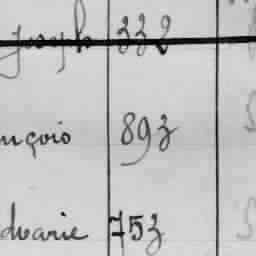 Joseph 332
nçois 893
douarie 753